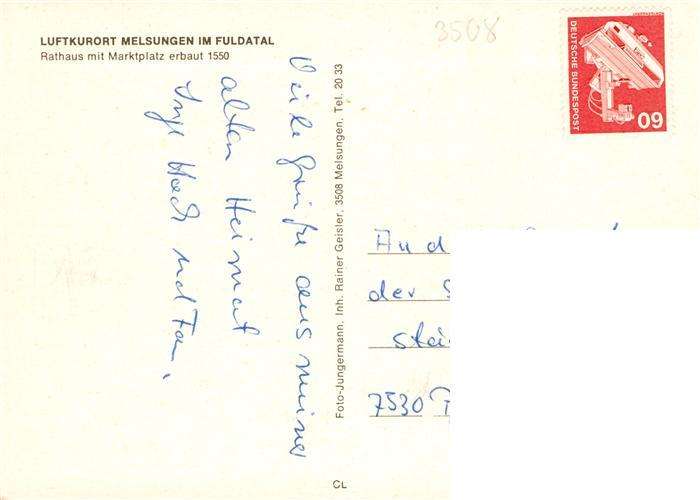 LUFTKURORT MELSUNGEN IM FULDATAL
Rathaus mit Marktplatz erbaut 1550
3508
DEUTSCHE BUNDESPOST
60
Viele Grüße aus meiner
alten Heimat
Inge Koch und Fam.
Foto-Jungermann. Inh. Rainer Geisler, 3508 Melsungen. Tel. 20 33
An d
der S
Stei
7530
CL